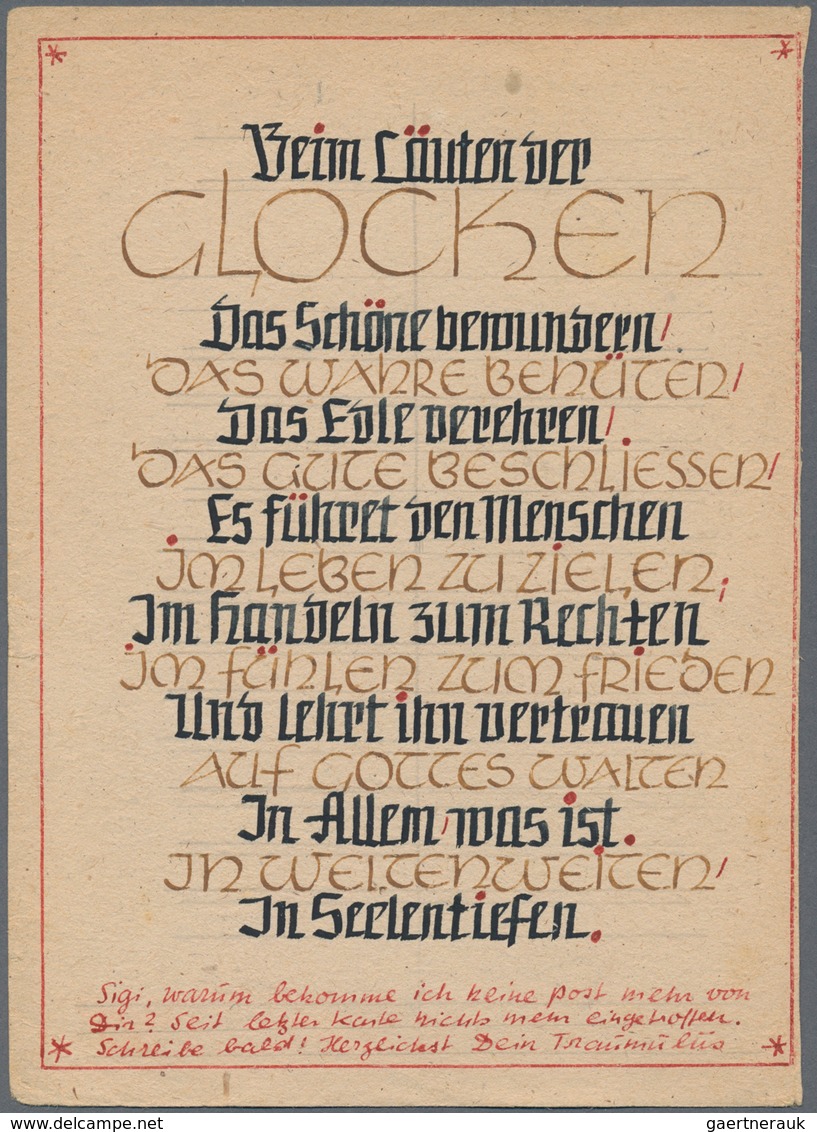 Beim Läuten der
GLOCKEN
Das Schöne bewundern,
DAS WAHRE BEHÜTEN,
Das Edle verehren,
DAS GUTE BESCHLIESSEN,
Es führet den Menschen
IM LEBEN ZU ZIELEN;
Im Handeln zum Rechten
IM FÜHLEN ZUM FRIEDEN
Und lehrt ihn vertrauen
AUF GOTTES WALTEN
In Allem, was ist.
IN WELTENWEITEN,
In Seelentiefen.
Sigi, warum bekomme ich keine Post mehr von
Dir? Seit letzter Karte nichts mehr eingetroffen.
Schreibe bald! Herzlichst Dein Traumulus
gaertnerauk@delcampe.net